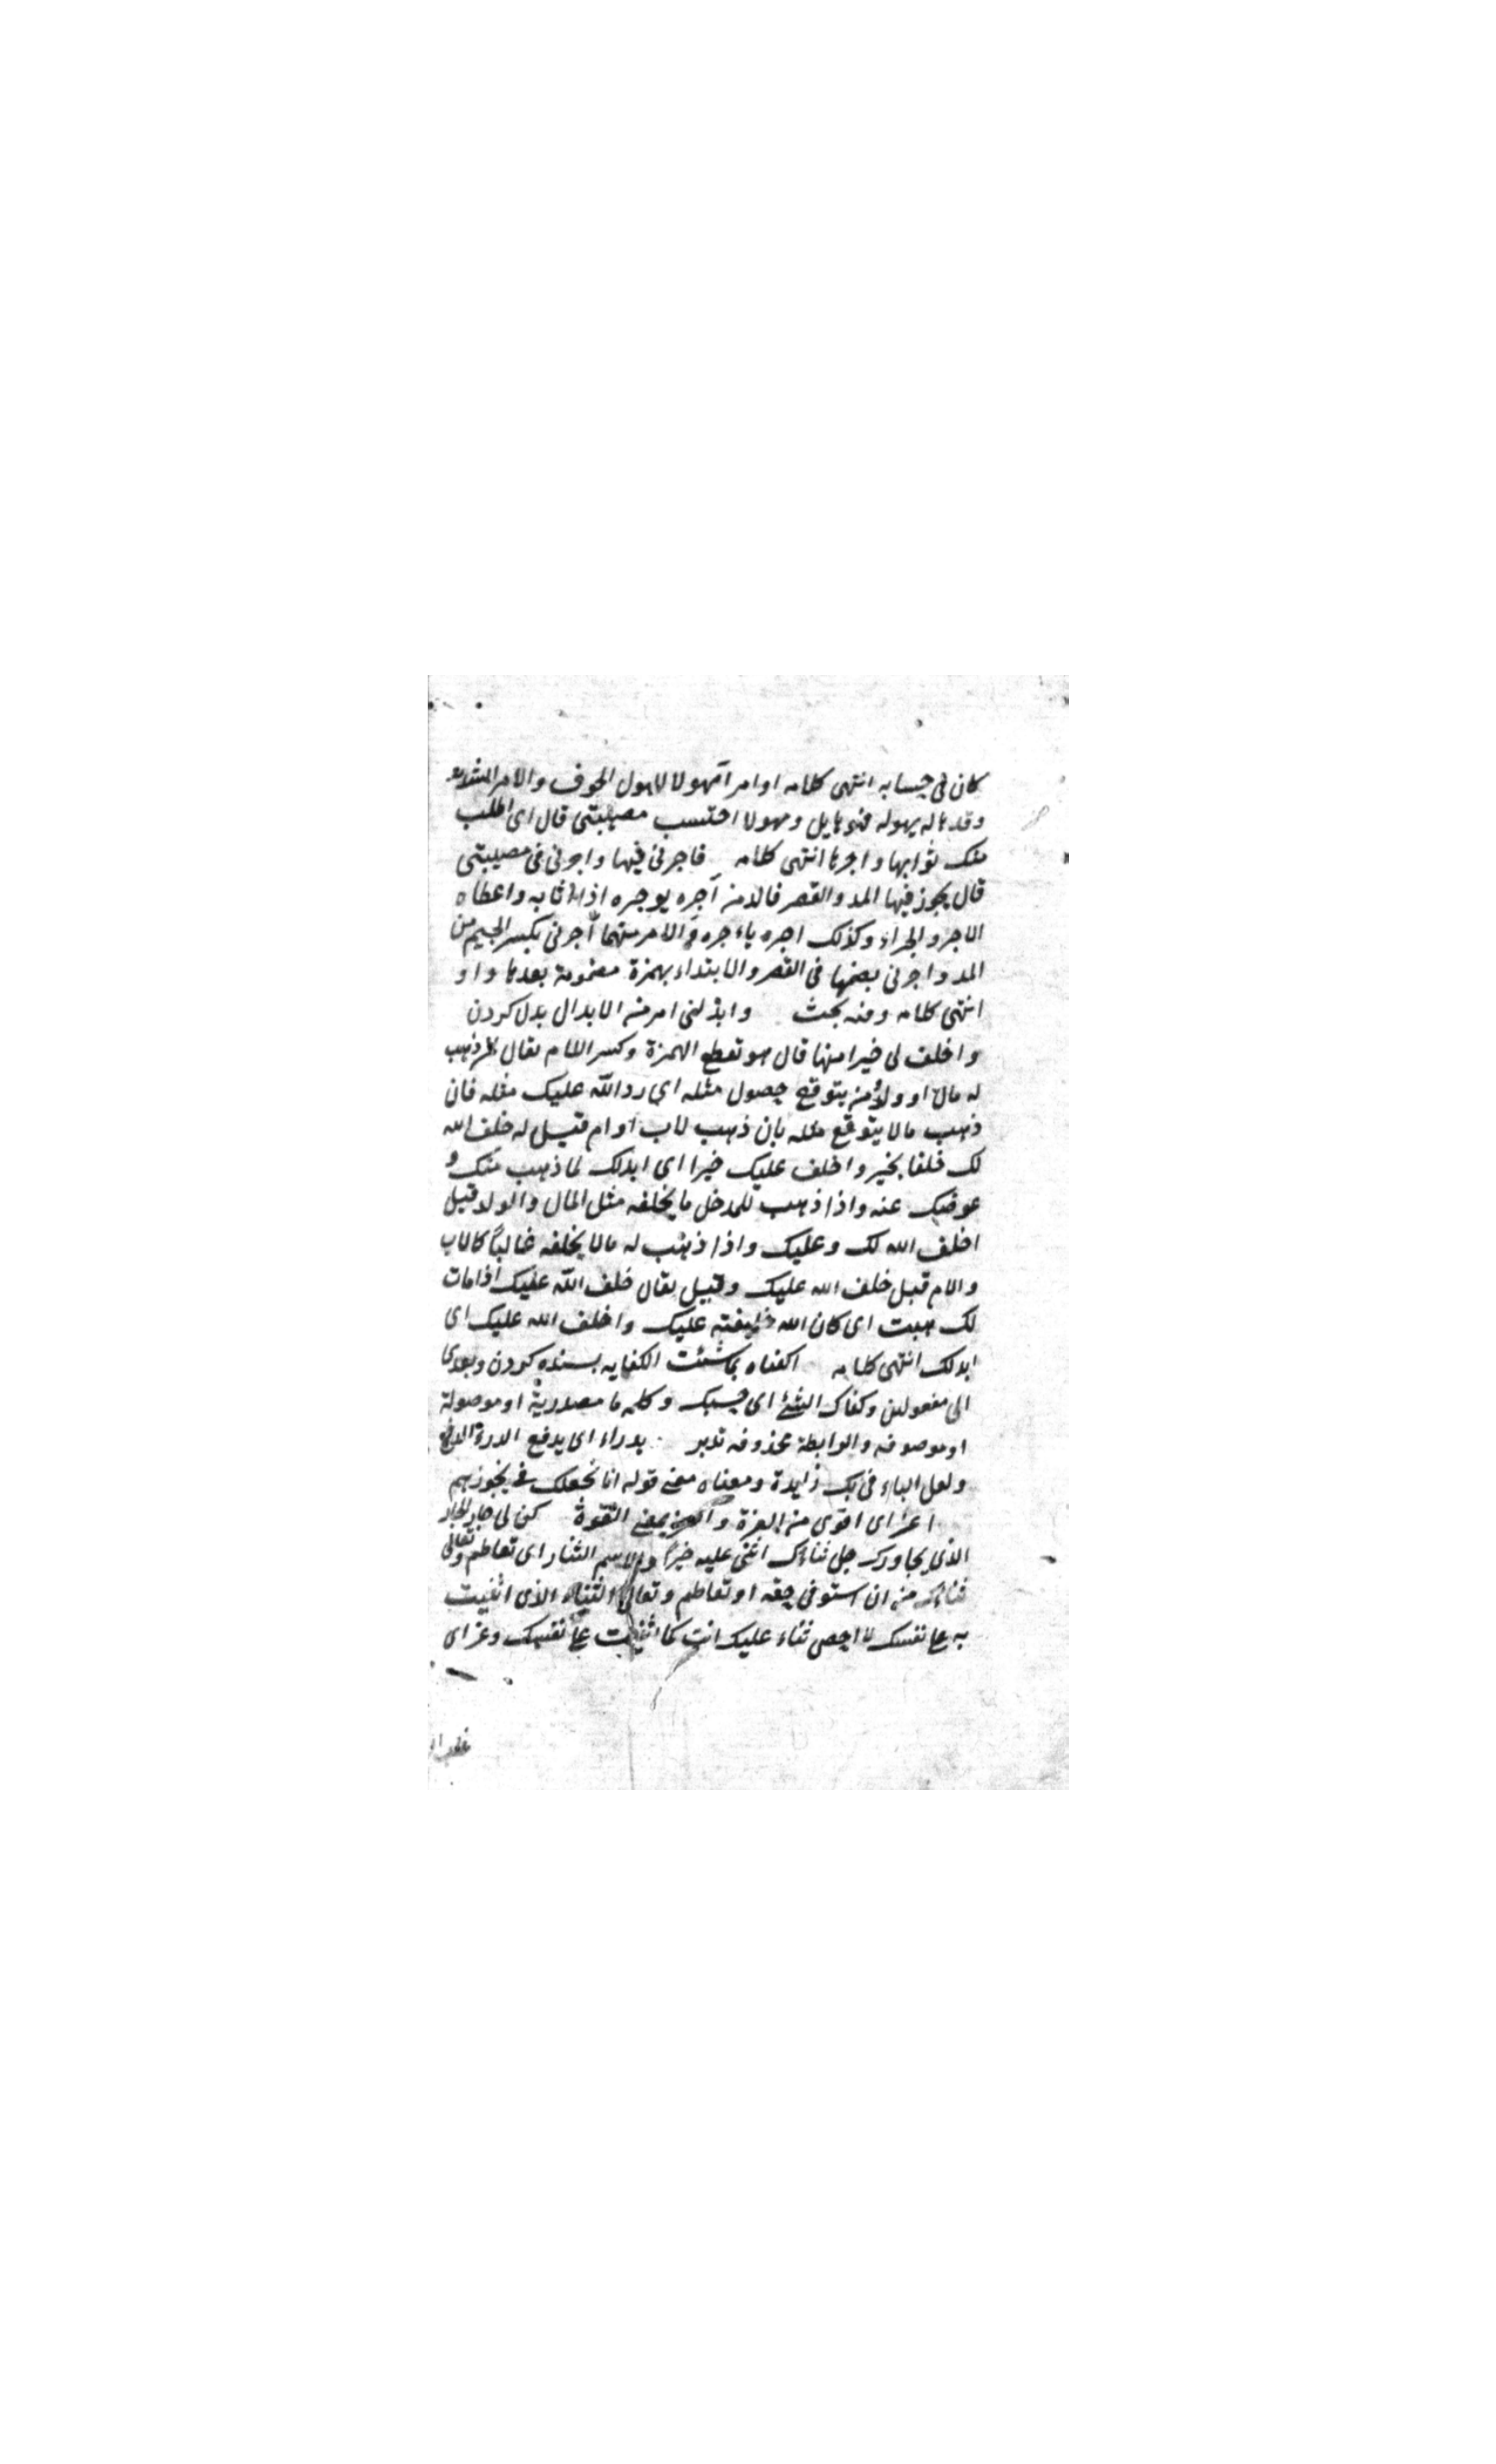 كان فى حسابه انتهى كلامه او امرا مهولا للهول الخوف والامر الشديد
وقد هاله يهوله فهو هايل ومهول احتسب مصيبتى قال اى اطلب
منك ثوابها واجرها انتهى كلامه فاجرنى فيها واجرنى فى مصيبتى
قال يجوز فيها المد والقصر فالمد من آجره يوجره اذا اثابه واعطاه
الاجر والجزاء وكذلك اجره ياءجره والامر منهما آجرنى بكسر الجيم من
المد واجرنى بضمها فى القصر والابتداء بهمزة مضمومة بعدها واو
انتهى كلامه ومنه بحث وابدلنى امر من الابدال بدل كردن
واخلف لى خيرا منها قال هو بقطع الهمزة وكسر اللام يقال لمن ذهب
له مال او ولد من يتوقع حصول مثله اى رد الله عليك مثله فان
ذهب مالا يتوقع مثله بان ذهب لاب او ام قيل له خلف الله
لك خلفا بخير واخلف عليك خيرا اى ابدلك لما ذهب منك و
عوضك عنه واذا ذهب للرجل ما يخلفه مثل المال والولد قيل
اخلف الله لك وعليك واذا ذهب له مالا يخلفه غالبا كالاب
والام قيل خلف الله عليك وقيل يقال خلف الله عليك اذا مات
لك ميت اى كان الله خليفته عليك واخلف الله عليك اى
ابدلك انتهى كلامه اكفناه بما شئت الكفايه بسنده كردن ويعدى
الى مفعولين وكفاك الشئ اى حسبك وكلمه ما مصدرية او موصولة
او موصوفه والرابطة محذوفه تدبر يدراء اى يدفع الدرء الدفع
ولعل الباء فى بك زايدة ومعناه معنى قوله انا نجعلك فى نحورهم
اعز اى اقوى من العزة والعز بمعنى القوة كن لى جارا الجار
الذى يجاورك جل ثناؤك اثنى عليه خيرا والاسم الثناء اى تعاظم وتعالى
ثناؤك من ان استوفى حقه او تعاظم وتعالى الثناء الذى اثنيت
به على نفسك لا احصى ثناء عليك انت كما اثنيت على نفسك وعز اى